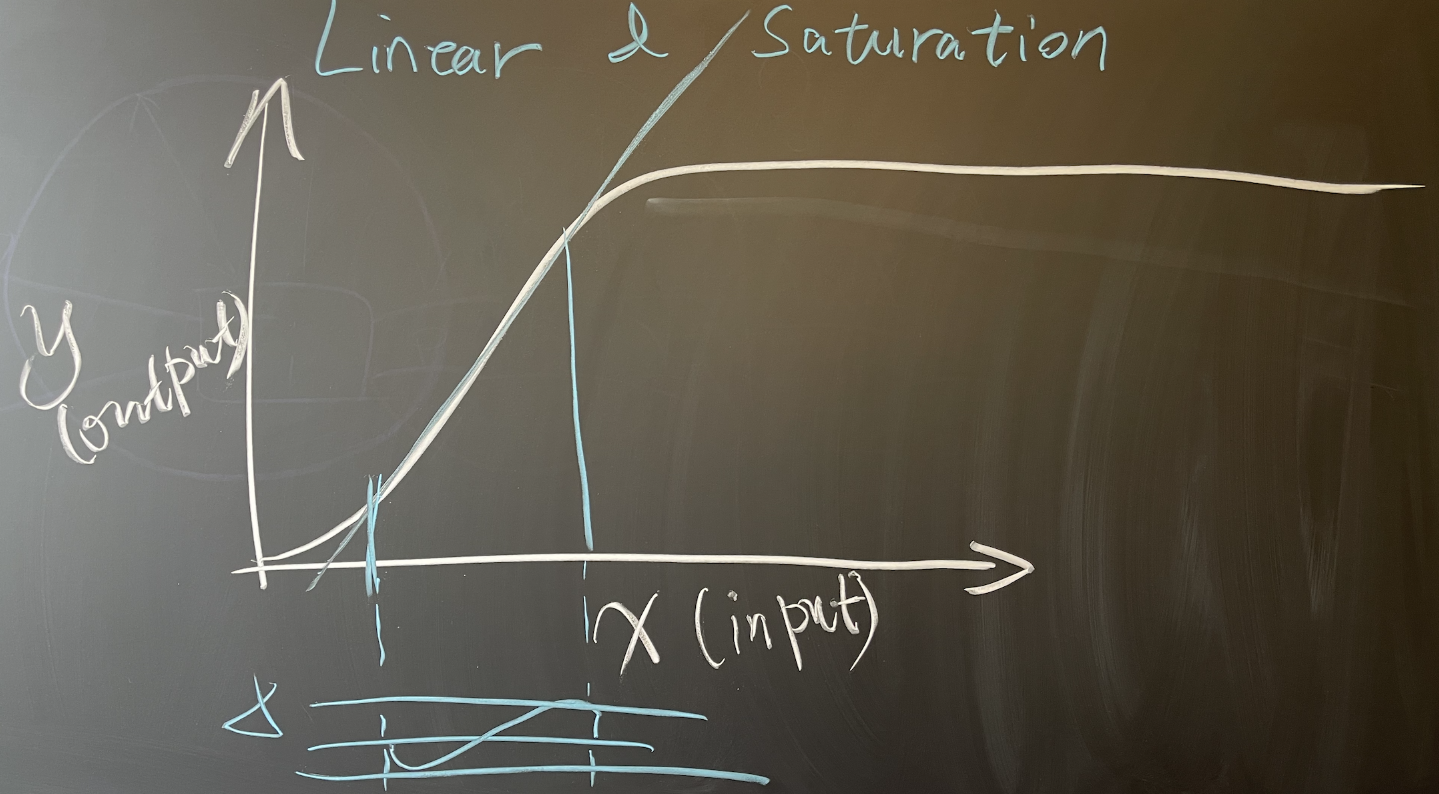 Linear & Saturation
y
(output)
x (input)
Δ